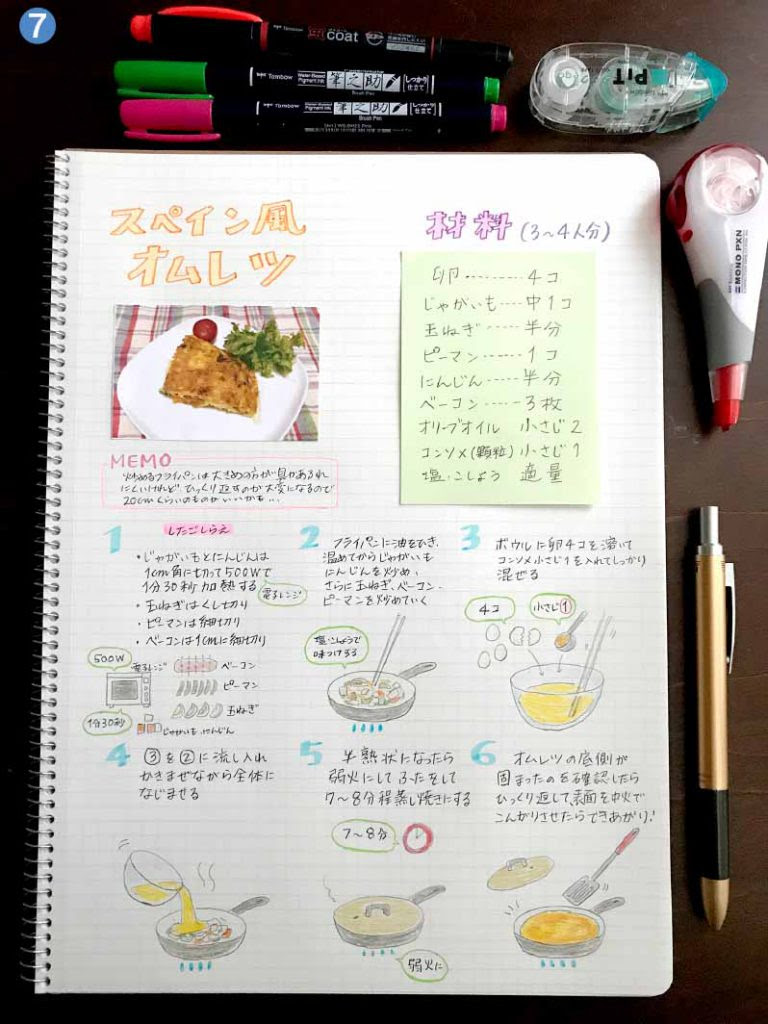 7
coat
Tombow 筆之助 しっかり仕立て
Water-Based Pigment Ink
Brush Pen
Tombow 筆之助 しっかり仕立て
Water-Based Pigment Ink
Brush Pen
PiT
MONO PXN
スペイン風
オムレツ
材料(3〜4人分)
卵………4コ
じゃがいも…中1コ
玉ねぎ……半分
ピーマン……1コ
にんじん……半分
ベーコン……3枚
オリーブオイル 小さじ2
コンソメ(顆粒)小さじ1
塩・こしょう 適量
MEMO
炒めるフライパンは大きめの方が具があふれ
にくいけれど、ひっくり返すのが大変になるので
20cmくらいのものがいいかも…
1 したごしらえ
・じゃがいもとにんじんは
1cm角に切って500Wで
1分30秒加熱する
電子レンジ
・玉ねぎはくし切り
・ピーマンは細切り
・ベーコンは1cmに細切り
500W
電子レンジ
1分30秒
ベーコン
ピーマン
玉ねぎ
じゃがいも、にんじん
2 フライパンに油をひき、
温めてからじゃがいも
にんじんを炒め、
さらに玉ねぎ、ベーコン・
ピーマンを炒めていく
塩・こしょうで
味つけする
3 ボウルに卵4コを溶いて
コンソメ小さじ1を入れてしっかり
混ぜる
4コ
小さじ1
4 ③を②に流し入れ
かきまぜながら全体に
なじませる
5 半熟状になったら
弱火にしてふたをして
7〜8分程蒸し焼きにする
7〜8分
弱火に
6 オムレツの底側が
固まったのを確認したら
ひっくり返して、表面を中火で
こんがりさせたらできあがり!